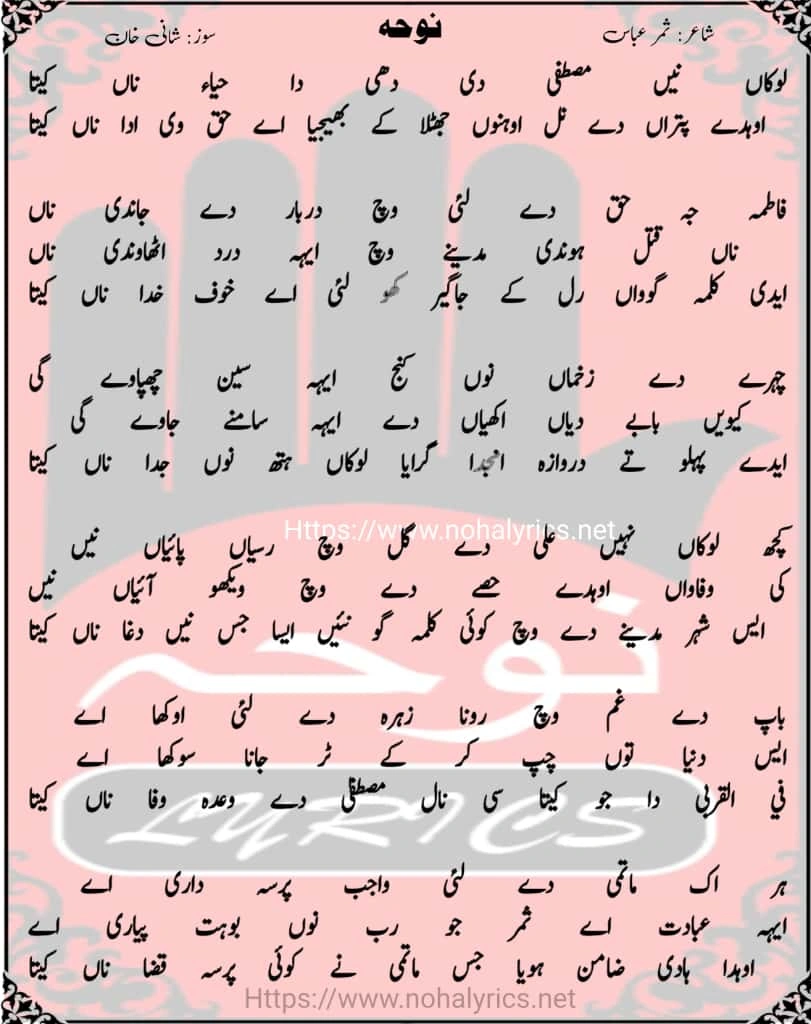 شاعر: ثمر عباس
نوحہ
سوز: شانی خان
لوکاں نیں مصطفیٰ دی دھی دا حیاء ناں کیتا
اوہدے پتراں دے نل اوہنوں جھٹلا کے بھیجیا اے حق وی ادا ناں کیتا
فاطمہ جہ حق دے لئی وچ دربار دے جاندی ناں
ناں قتل ہوندی مدینے وچ ایہہ درد اٹھاوندی ناں
ایدی کلمہ گوواں رل کے جاگیر کھو لئی اے خوف خدا ناں کیتا
چہرے دے زخماں نوں کنج ایہہ سین چھپاوے گی
کیویں بابے دیاں اکھیاں دے ایہہ سامنے جاوے گی
ایدے پہلو تے دروازہ انجدا گرایا لوکاں ہتھ نوں جدا ناں کیتا
Https://www.nohalyrics.net
کچھ لوکاں نہیں علی دے گل وچ رسیاں پائیاں نیں
کی وفاواں اوہدے حصے دے وچ ویکھو آئیاں نیں
ایس شہر مدینے دے وچ کوئی کلمہ گو نئیں ایسا جس نیں دغا ناں کیتا
نوحہ
باپ دے غم وچ رونا زہرہ دے لئی اوکھا اے
ایس دنیا توں چپ کر کے ٹر جانا سوکھا اے
في القربی دا جو کیتا سی نال مصطفیٰ دے وعدہ وفا ناں کیتا
LYRICS
ہر اک ماتمی دے لئی واجب پرسہ داری اے
ایہہ عبادت اے ثمر جو رب نوں بوہت پیاری اے
اوہدا ہادی ضامن ہویا جس ماتمی نے کوئی پرسہ قضا ناں کیتا
Https://www.nohalyrics.net